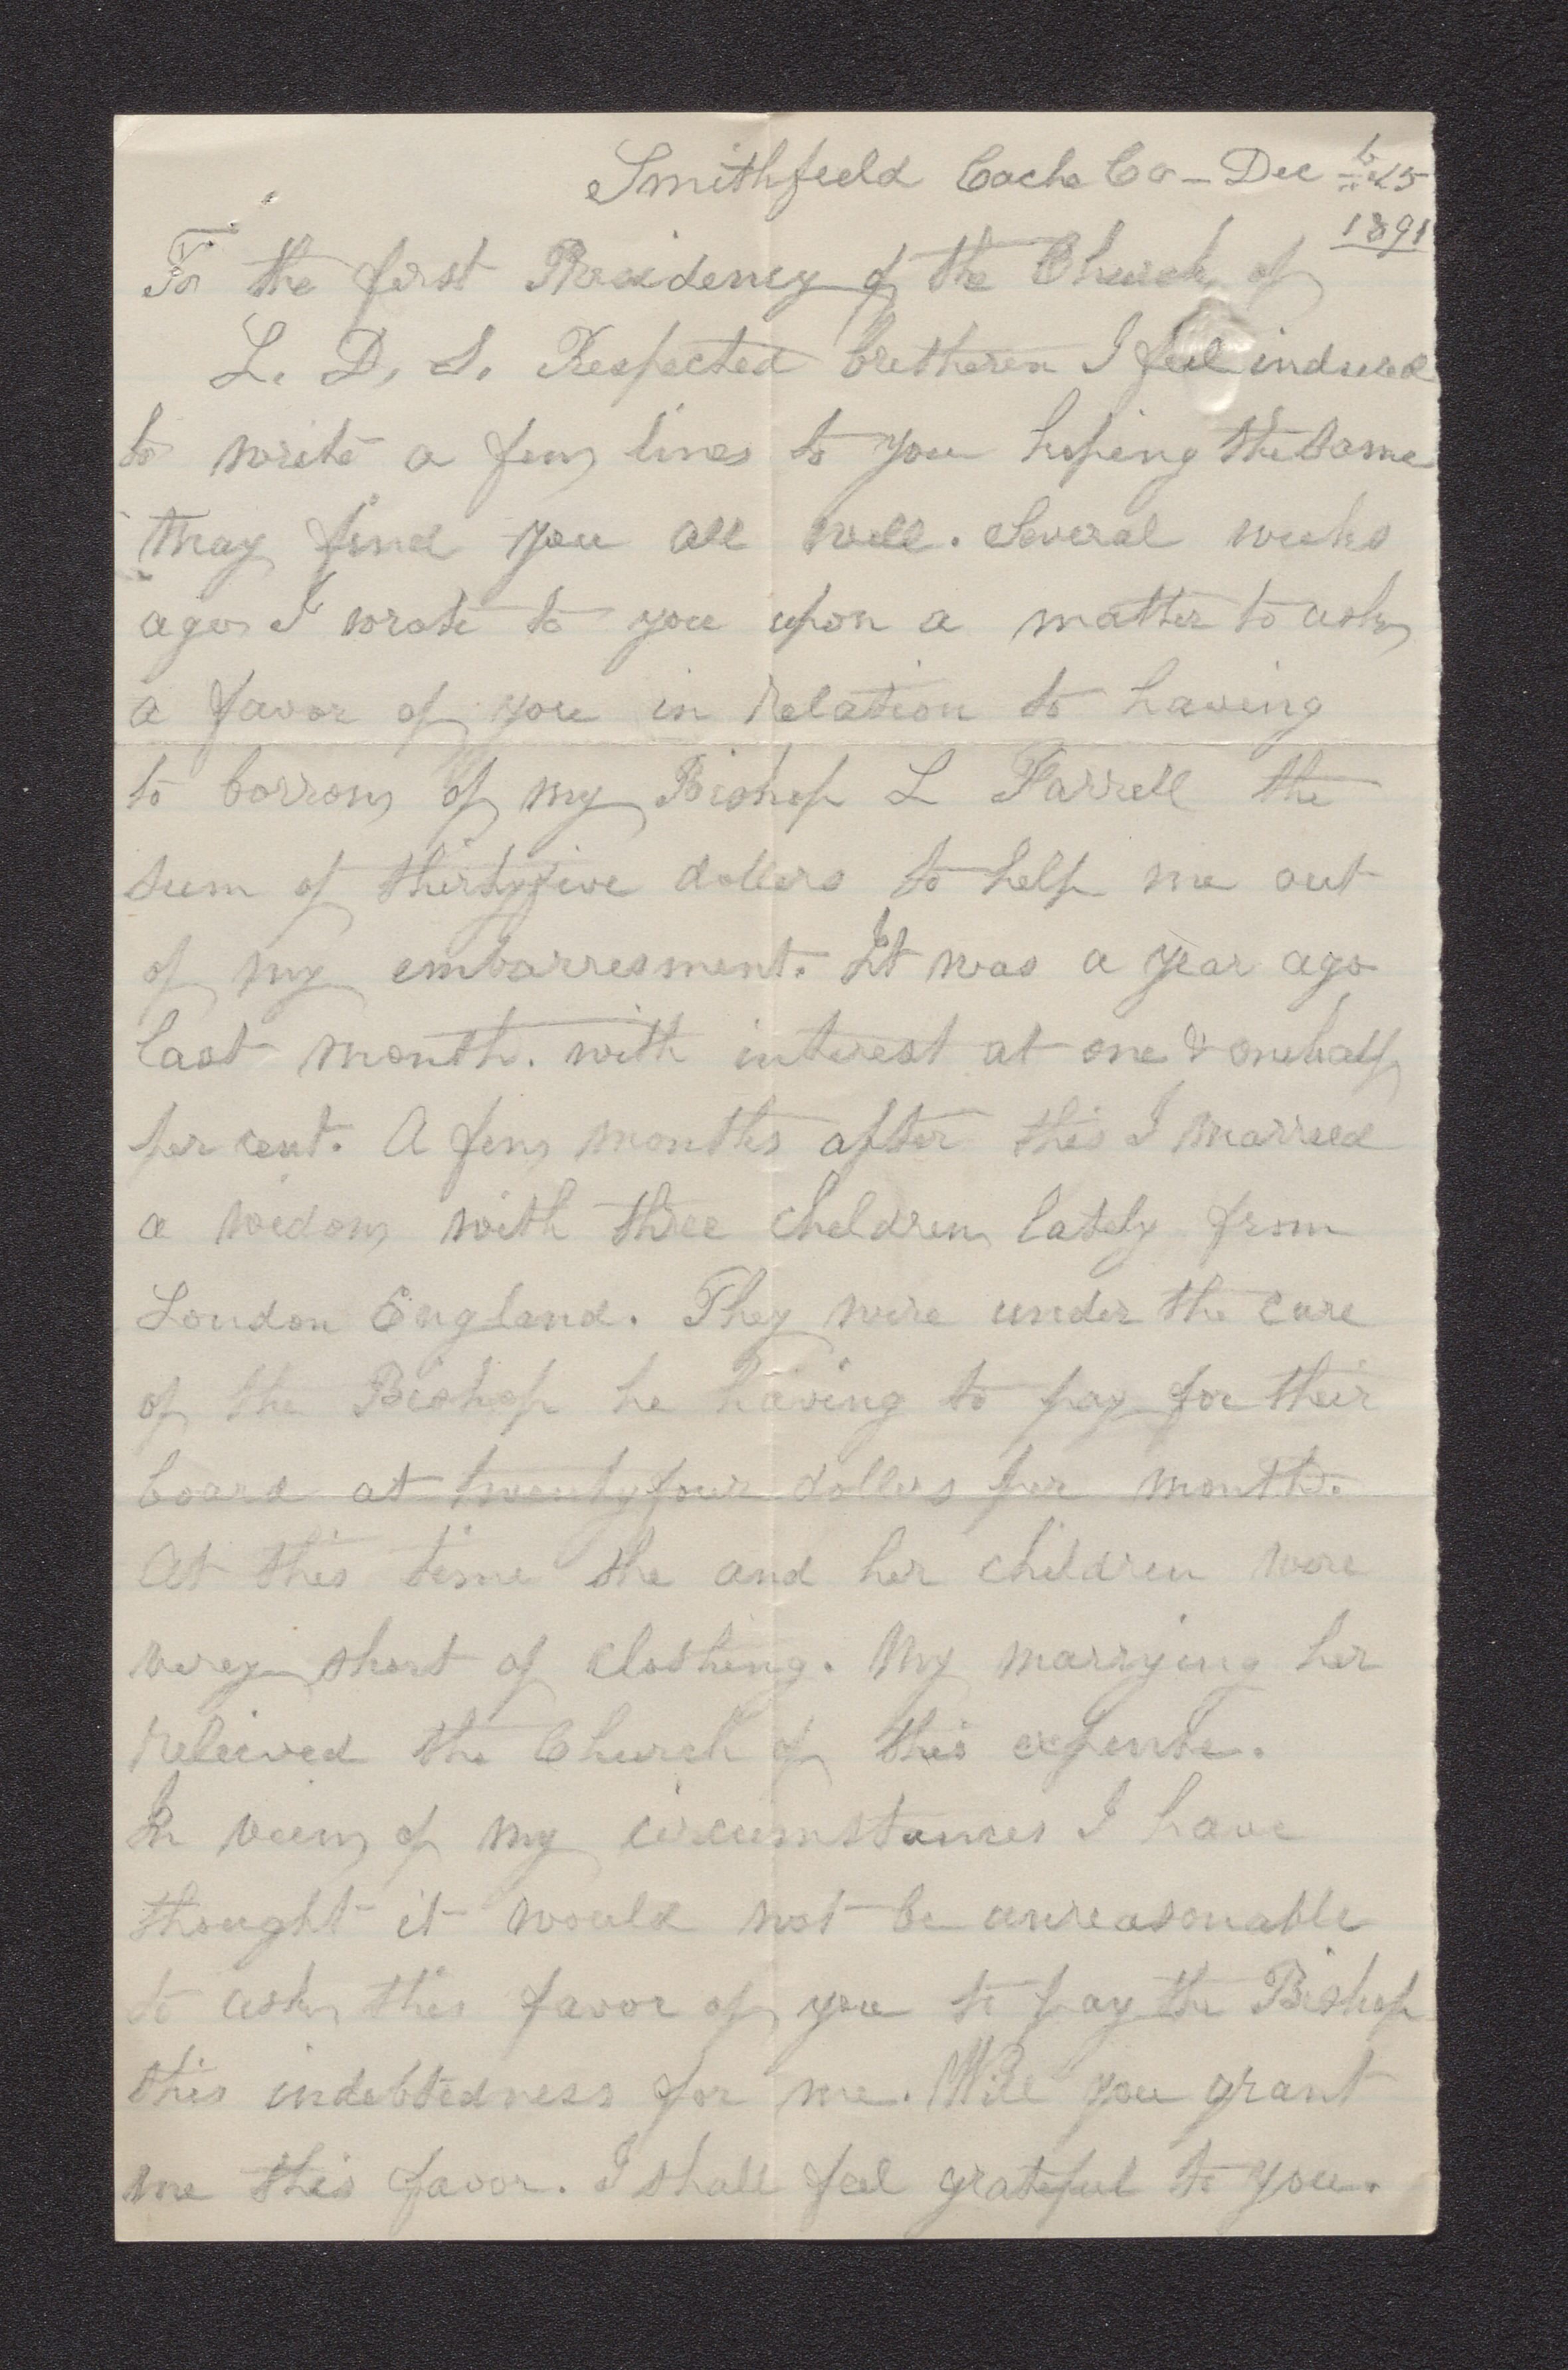 Smithfield Cache Co - Dec 15
1891
To the first Presidency of the Church of
L. D. S. Respected bretheren I feel induced
to write a few lines to you hoping the same
may find you all well. Several weeks
ago I wrote to you upon a matter to ask
a favor of you in relation to having
to borrow of my Bishop L Farrell the
sum of thirtyfive dollers to help me out
of my embarresment. It was a year ago
last month. with interest at one & onehalf
per cent. A few months after this I married
a widow with three children lately from
London England. They were under the care
of the Bishop he having to pay for their
board at twentyfour dollers per month.
At this time she and her children were
verey short of clothing. My marrying her
releived the Church of this expense.
In veiw of my circumstances I have
thought it would not be unreasonable
to ask this favor of you to pay the Bishop
this indebtedness for me. Will you grant
me this favor. I shall feel grateful to you.